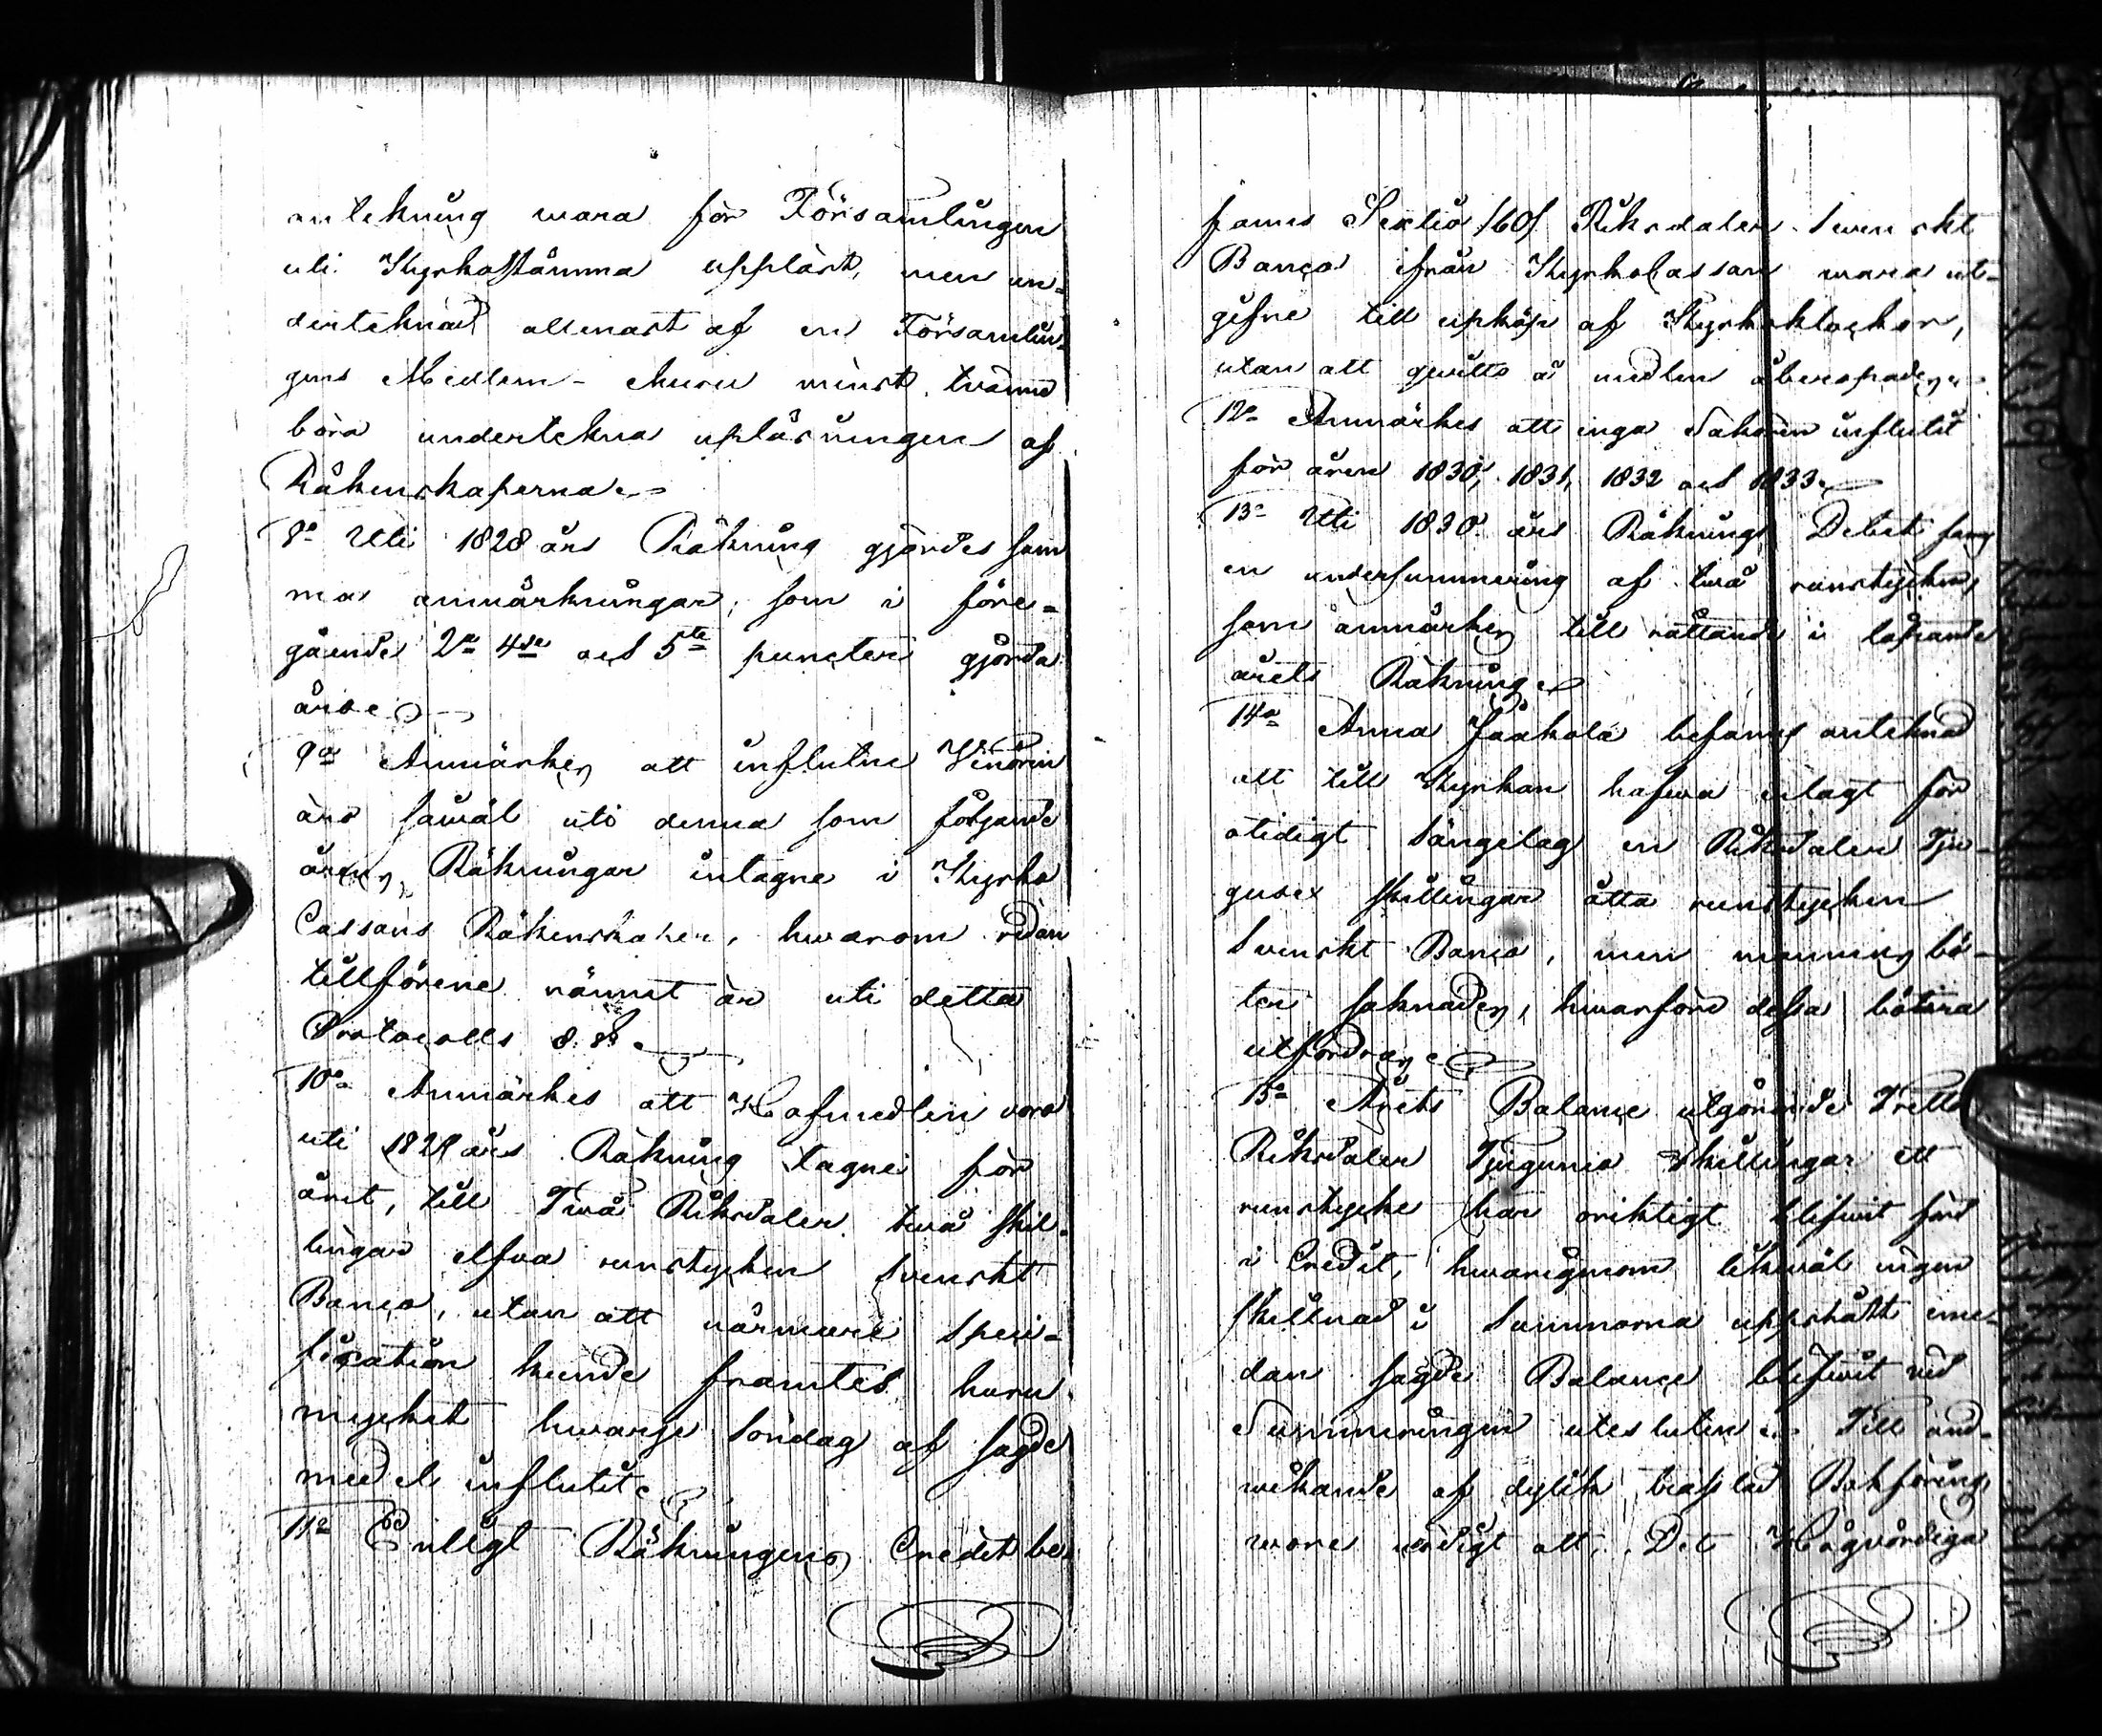 antekning wara för Församlingen
uti Kyrkostämma uppläst, men un-
dertcknad allenast af en Församlin-
gens Medlem - churu minst tvänne
böra underteckna upläsningen af
Räkenskaperna.
8:o Uti 1828 års Räkning gjordes sam
ma anmärkningar, som i före-
gående 2:a 4:de och 5:te puncter gjorda
äro.
9:o Anmärkes att influtne Vinören
äro såwäl uti denna som följande
årens Räkningar intagne i Kyrko
Cassans Räkenskaper, hwarom redan
tillförene nämnt är uti detta
Protocolls §. 8.
10:o Anmärkes att Hafmedlen voro
uti 1829 års Räkning tagne för
året, till Twå Riksdaler två skil-
lingar elfva runstycken Svenskt
Banco, utan att närmare speci-
fication kunde framtes huru
mycket hwarje Söndag af sagde
medel influtit.
11:o Enligt Räkningens Credit be-
fanns Sextio /60/ Riksdaler Swenskt
Banco ifrån KyrkoCassan wara ut-
gifne till upköp af Kyrkoklockor,
utan att qvitto å medlen åberopades.
12:o Anmärkes att inga Sakören influtit
för åren 1830, 1831, 1832 och 1833.
13:o Uti 1830 års Räknings Debet fans
en undersummering af twå runstycken,
som anmärkes till rättande i löpande
årets Räkning.
14:o Anna Jaakola befanns antcknad
att till Kyrkan hafwa erlagt för
otidigt Sängelag en Riksdaler Tju-
gusex skillingar åtta runstycken
Svenskt Banco, men mannens bö-
ter saknades, hwarföre dessa böterna
utfordras.
15:o Årets Balance utgörande Tretto
Riksdaler Tjugunio skillingar ett
runstycke har oriktigt blifwit förd
i Credit, hwarigenom likwäl ingen
skillnad i Summorna uppstått eme-
dan sagde Balance blifwit wid
Summeringen utesluten. Till und-
wikande af dylik trasslad Bokföring,
wore nödigt att Det Högvördiga